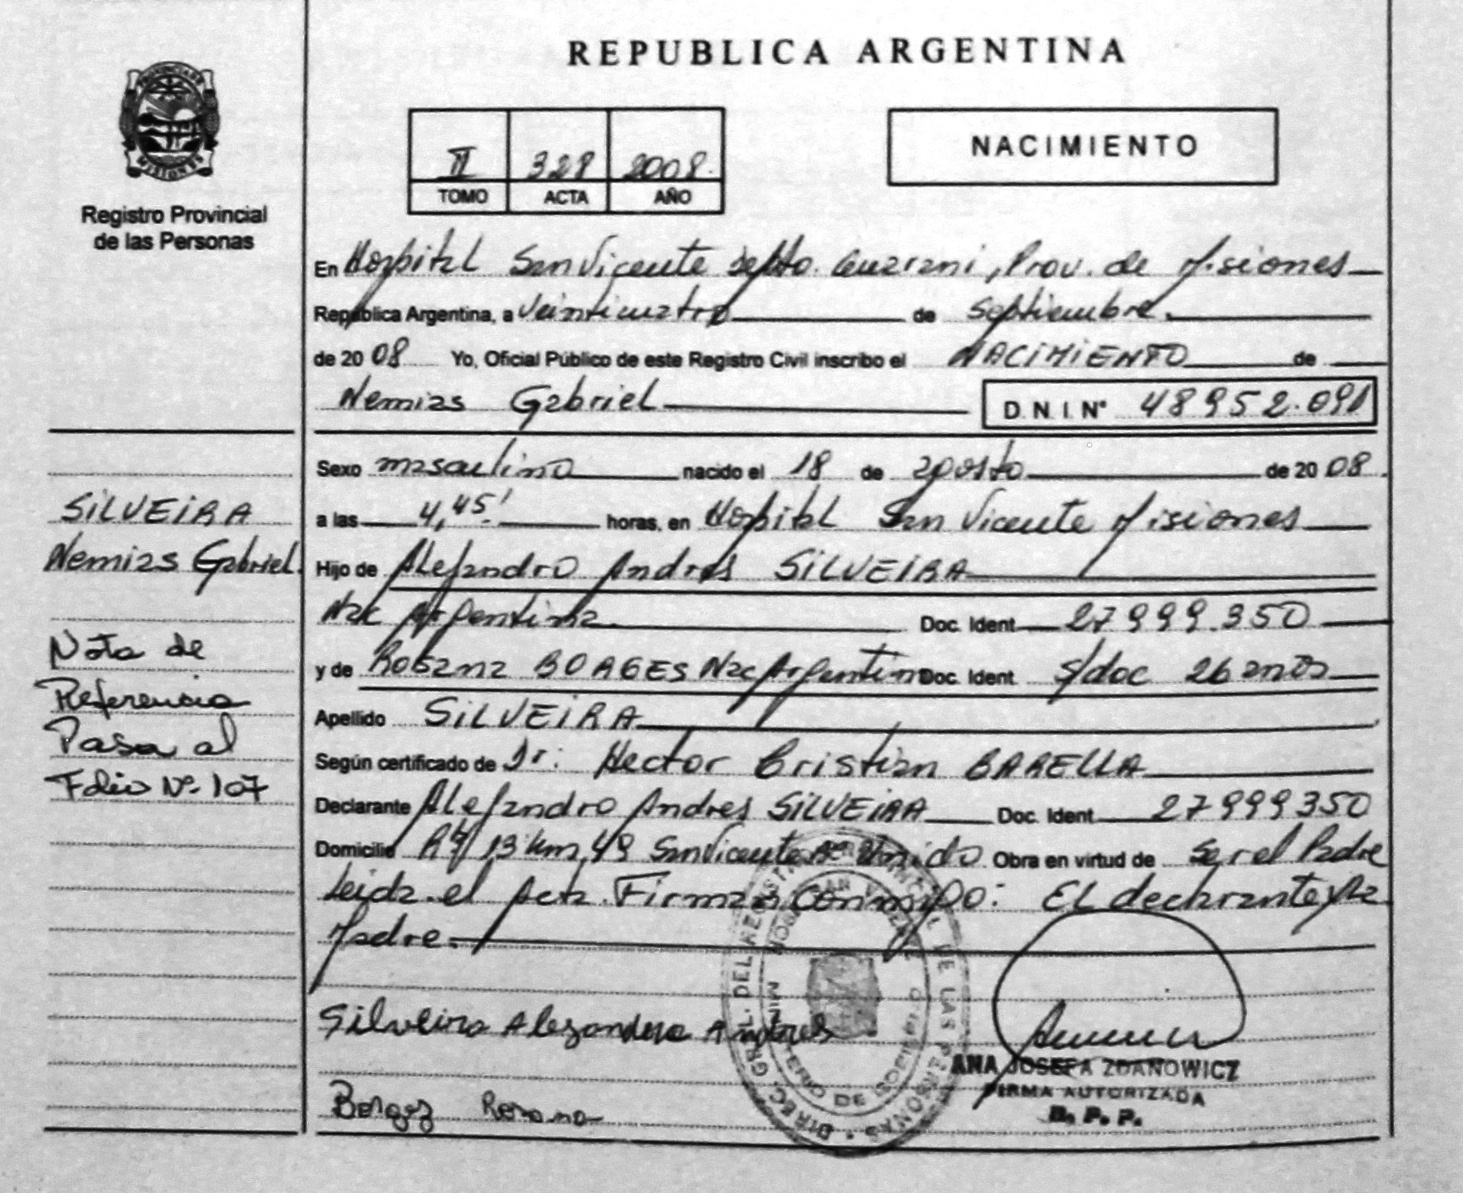 REPUBLICA ARGENTINA
PROVINCIA DE
MISIONES
Registro Provincial
de las Personas
II 328 2008.
TOMO ACTA AÑO
NACIMIENTO
En Hospital San Vicente Depto. Guarani, Prov. de Misiones
República Argentina, a Veinticuatro de Septiembre.
de 20 08 Yo, Oficial Público de este Registro Civil inscribo el NACIMIENTO de
Nemias Gabriel D.N.I. Nº 48952.091
Sexo masculino nacido el 18 de agosto de 20 08.
a las 4,45' horas, en Hospital San Vicente Misiones
Hijo de Alejandro Andres SILVEIRA
Nac Argentina. Doc. Ident. 27999.350
y de Rosana BORGES Nac Argentina Doc. Ident s/doc 26 anos
Apellido SILVEIRA
Según certificado de Dr: Hector Cristian BARELLA
Declarante Alejandro Andres SILVEIRA Doc. Ident. 27999350
Domicilio 13 Km 49 San Vicente Unido Obra en virtud de Ser el Padre
Leida el Acta Firman Conmigo: El declarante y la
Madre.
SILVEIRA
Nemias Gabriel
Nota de
Referencia
Pasa al
Folio Nº 107
Silveira Alejandro Andres
Borges Rosana
DIREC. GRAL. DEL REGISTRO PROVINCIAL DE LAS PERSONAS
SAN VICENTE
MINISTERIO DE GOBIERNO
ANA JOSEFA ZDANOWICZ
FIRMA AUTORIZADA
R. P. P.